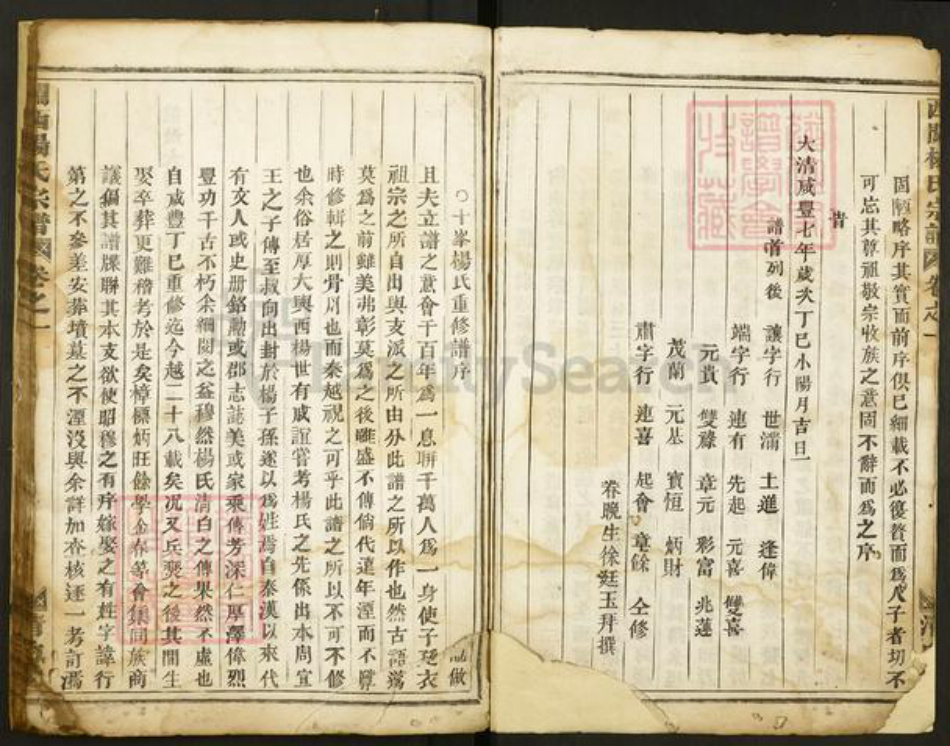 因頤略序其實而前序俱已細載不必復贅而為人子者切不
可忘其尊祖敬宗收族之意固不辭而為之序
旹
大清咸豐七年歲次丁巳小陽月吉旦
譜首列後 讓字行 世濡 士進 逢偉
端字行 連有 先起 元喜 雙喜
元貴 雙祿 章元 彩富 兆蓮
茂蘭 元基 寶恒 炳財
肅字行 連喜 起會 章餘 仝修
眷晚生徐廷玉拜撰
○十峯楊氏重修譜序
且夫立譜之意會千百年為一息聯千萬人為一身使子孫衣
祖宗之所自出與支派之所由分此譜之所以作也然古語 做
莫為之前雖美弗彰莫為之後雖盛不傳倘代遠年湮而不
時修輯之則骨肉也而秦越視之可乎此譜之所以不可不修
也余俗居厚大與西楊世有戚誼嘗考楊氏之先係出本周宣
王之子傳至叔向出封於楊子孫遂以為姓焉自秦漢以來代
有文人或史册銘勳或郡志誌美或家乘傳芳深仁厚澤偉烈
豐功千古不朽余細閱之益穆然楊氏清白之傳果然不虛也
自咸豐丁巳重修迄今越二十八載矣况又兵燹之後其間生
娶卒葬更難稽考於是矣樟標炳旺餘學金春等會集同族商
議編其譜牒聯其本支欲使昭穆之有序嫁娶之有姓字諱行
第之不參差安葬墳墓之不湮沒與余詳加查核逐一考訂焉
西關楊氏宗譜
卷之一